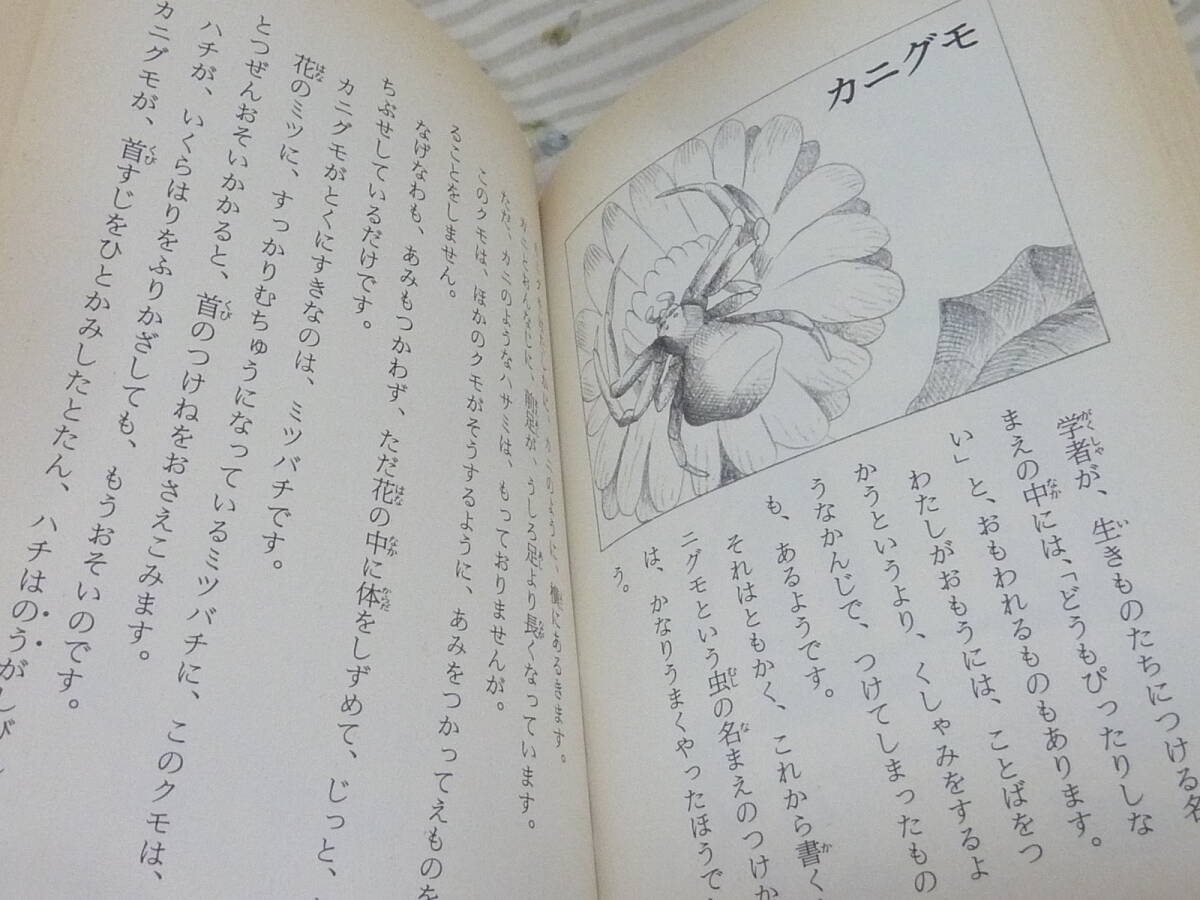 カニグモ
学者が、生きものたちにつける名
まえの中には、「どうもぴったりしな
い」と、おもわれるものもあります。
わたしがおもうには、ことばをつ
かうというより、くしゃみをするよ
うなかんじで、つけてしまったもの
も、あるようです。
それはともかく、これから書く、
ニグモという虫の名まえのつけか
は、かなりうまくやったほうで
う。
カニのように、横にあるきます。
カニとおんなじに、前足が、うしろ足より長くなっています。
ただ、カニのようなハサミは、もっておりませんが。
このクモは、ほかのクモがそうするように、あみをつかってえものを
ることをしません。
なげなわも、あみもつかわず、ただ花の中に体をしずめて、じっと、
ちぶせしているだけです。
カニグモがとくにすきなのは、ミツバチです。
花のミツに、すっかりむちゅうになっているミツバチに、このクモは、
とつぜんおそいかかると、首のつけねをおさえこみます。
ハチが、いくらはりをふりかざしても、もうおそいのです。
カニグモが、首すじをひとかみしたとたん、ハチはのうがしび